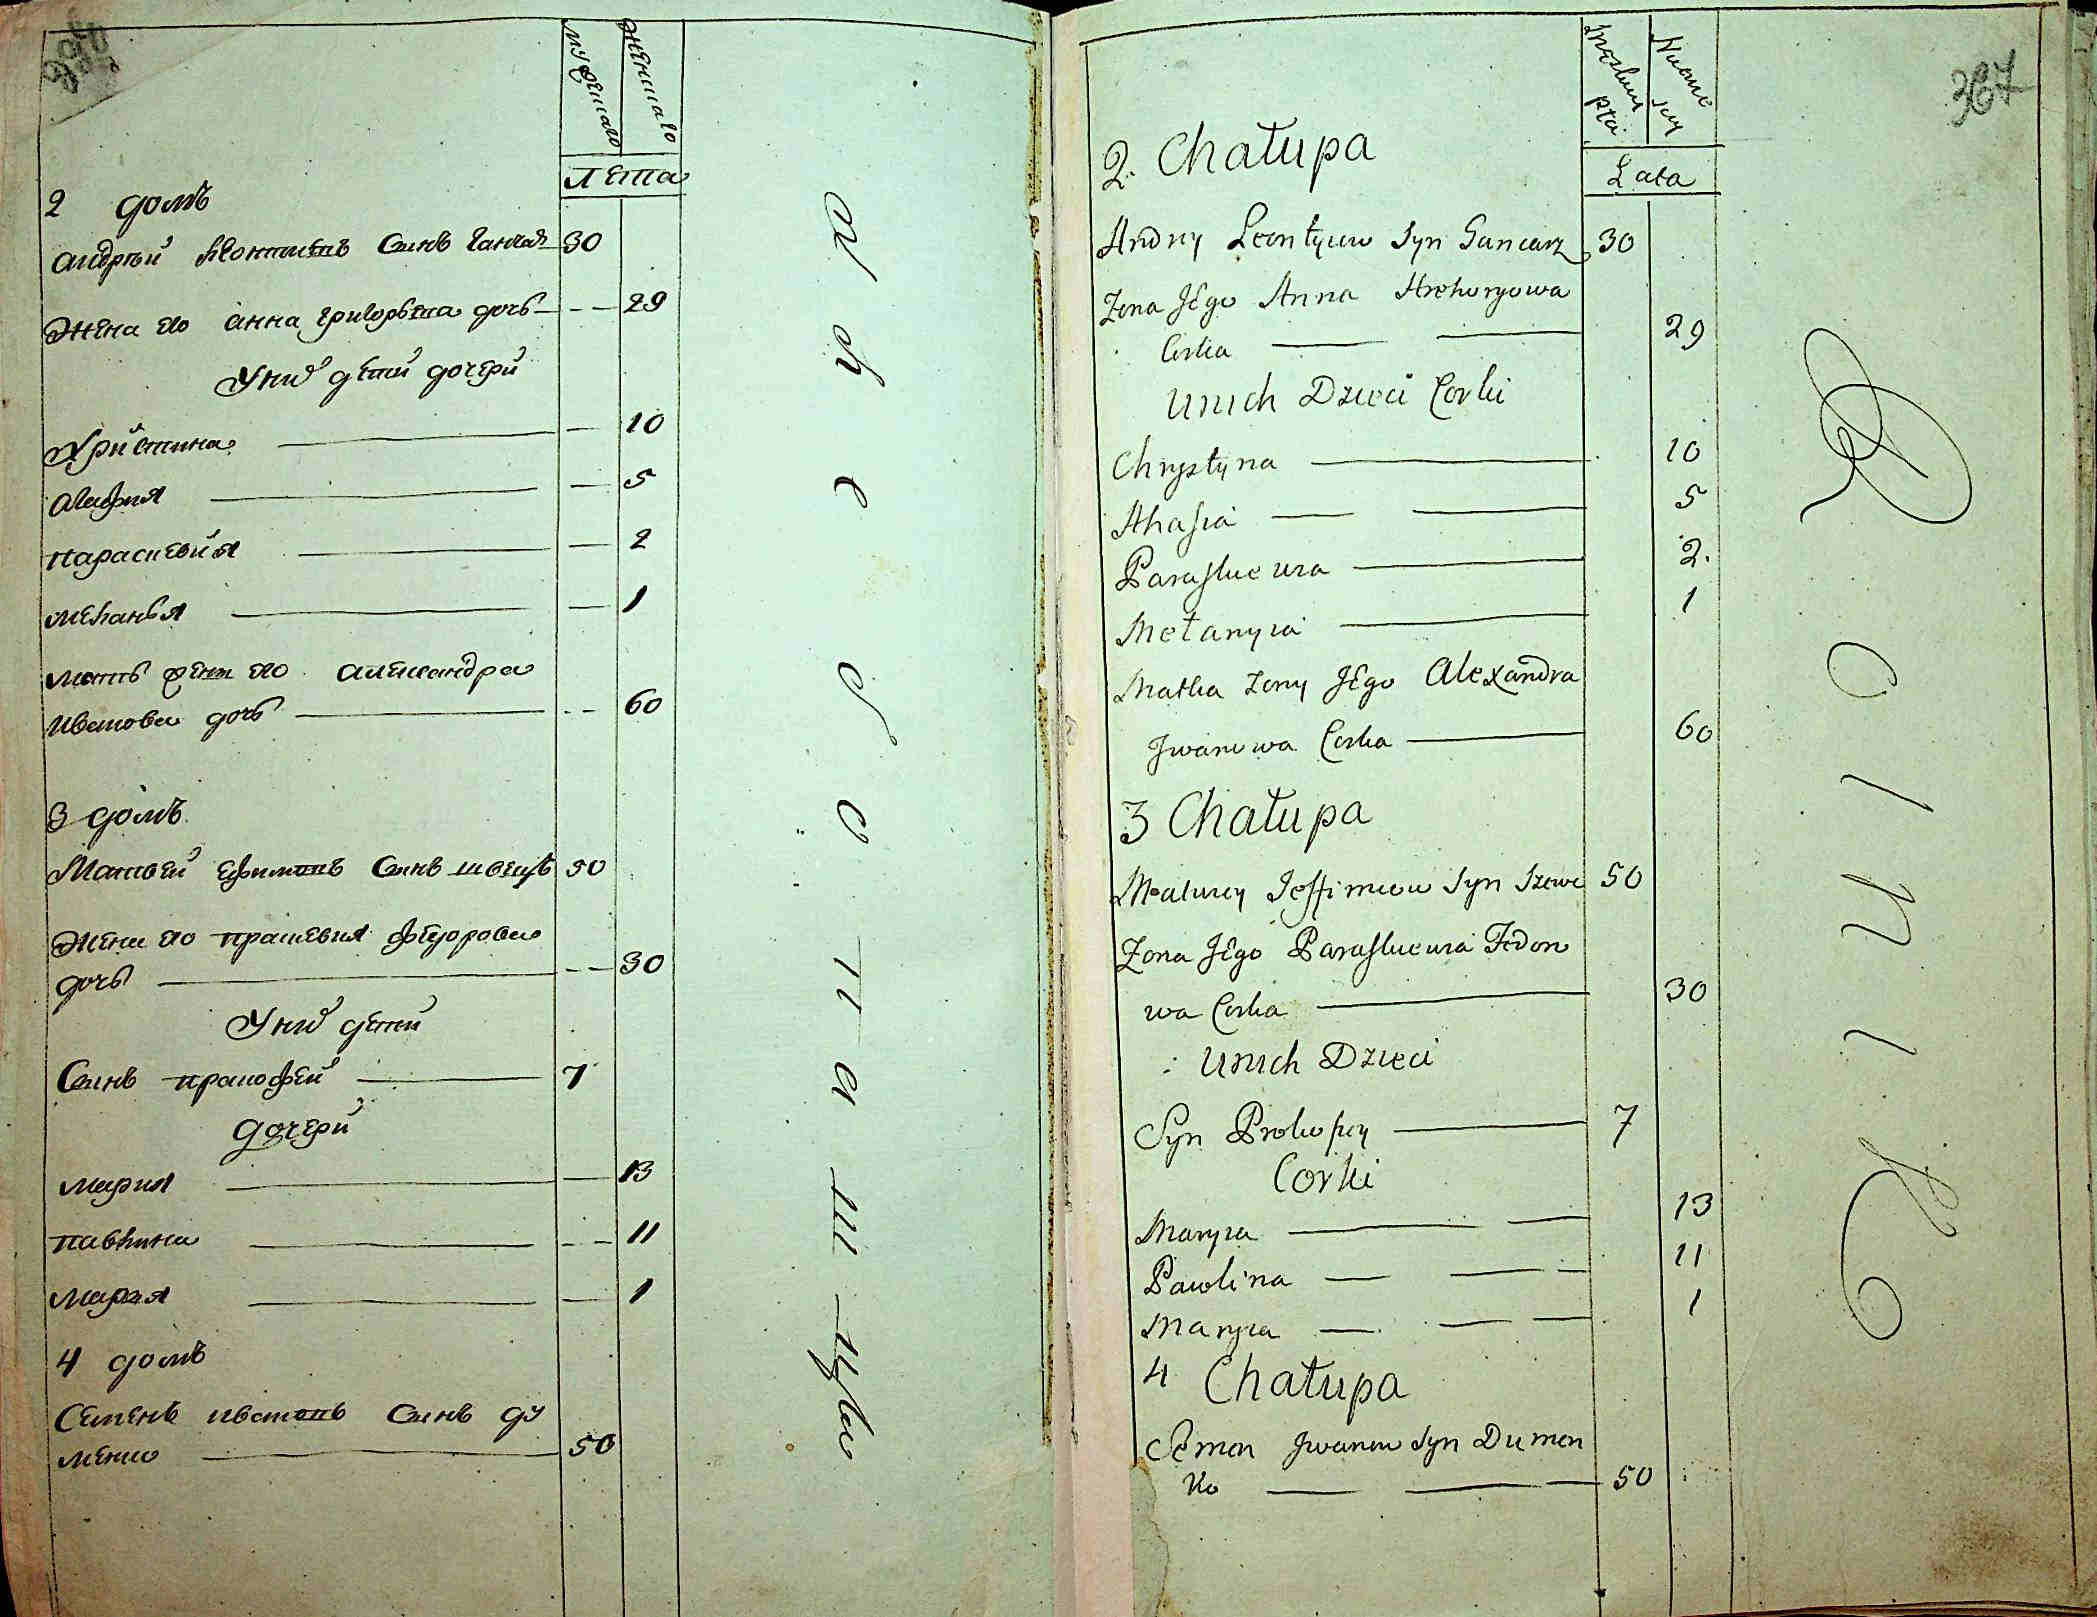 мужеска
женска
Лета
2 домъ
андрѣй леонтиевъ синъ ганчар 30
жена его анна григорьева дочь 29
У них детей дочери
Христина 10
Агафия 5
параскевия 2
меланья 1
мать жены его александра
иванова дочь 60
3 домъ
Матвей ефимовъ синъ швецъ 50
жена его праскевия федорова
дочь 30
У них детей
Синъ прокофей 7
дочери
мария 13
павлина 11
мария 1
4 домъ
Семенъ ивановъ синъ ду
менко 50
367
Męzkiey
płci
Lata
2. Chałupa
Andrey Leontyiew Syn Gancarz 30
Zona Jego Anna Hrehoryowa
Corka 29
Unich Dzieci Corki
Chrystyna 10
Ahafia 5
Paraskiewia 2.
Mełanyia 1
Matka Zony Jego Alexandra
Jwanowa Corka 60
3 Chałupa
Matwiey Jeffimiew Syn Szewc 50
Zona Jego Paraskiewia Fedoro
wa Corka 30
Unich Dzieci
Syn Prokopiy 7
Corki
Maryia 13
Pawlina 11
Maryia 1
4 Chałupa
Semen Jwanow Syn Dumen
ko 50